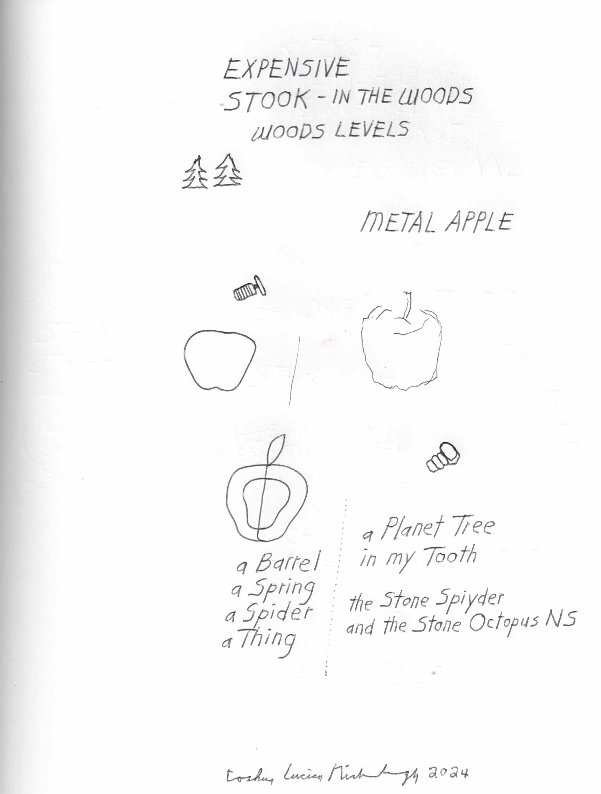 EXPENSIVE
STOOK - IN THE WOODS
WOODS LEVELS
METAL APPLE
a Barrel
a Spring
a Spider
a Thing
a Planet Tree
in my Tooth
the Stone Spiyder
and the Stone Octopus NS
2024